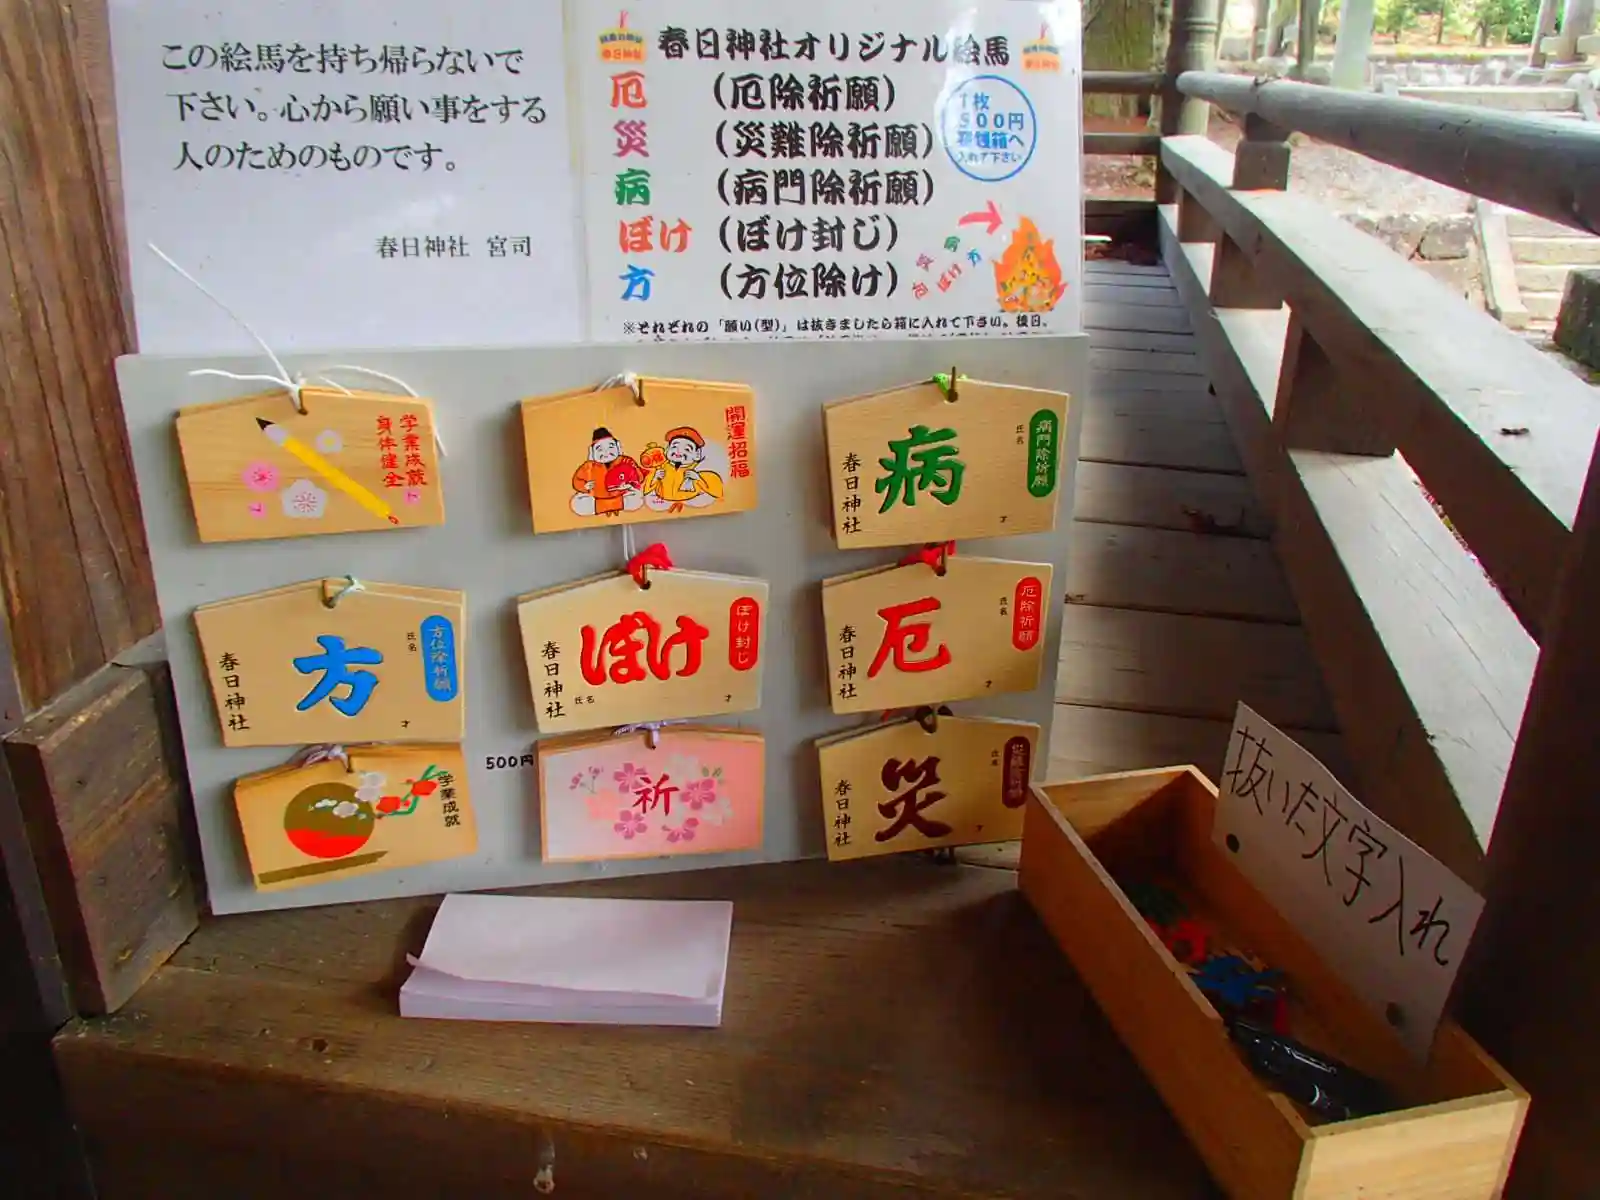 この絵馬を持ち帰らないで
下さい。心から願い事をする
人のためのものです。
春日神社 宮司
春日神社オリジナル絵馬
厄 (厄除祈願)
災 (災難除祈願)
病 (病門除祈願)
ぼけ (ぼけ封じ)
方 (方位除け)
1枚
500円
賽銭箱へ
入れて下さい
病
災 ぼけ 方
厄
※それぞれの「願い(型)」は抜きましたら箱に入れて下さい。後日、
学業成就
身体健全
開運招福
病門除祈願
氏名
病
春日神社
才
方位除祈願
氏名
方
春日神社
才
ぼけ封じ
ぼけ
春日神社
氏名
才
厄除祈願
氏名
厄
春日神社
才
学業成就
500円
祈
災難除祈願
氏名
災
春日神社
才
抜いた文字入れ